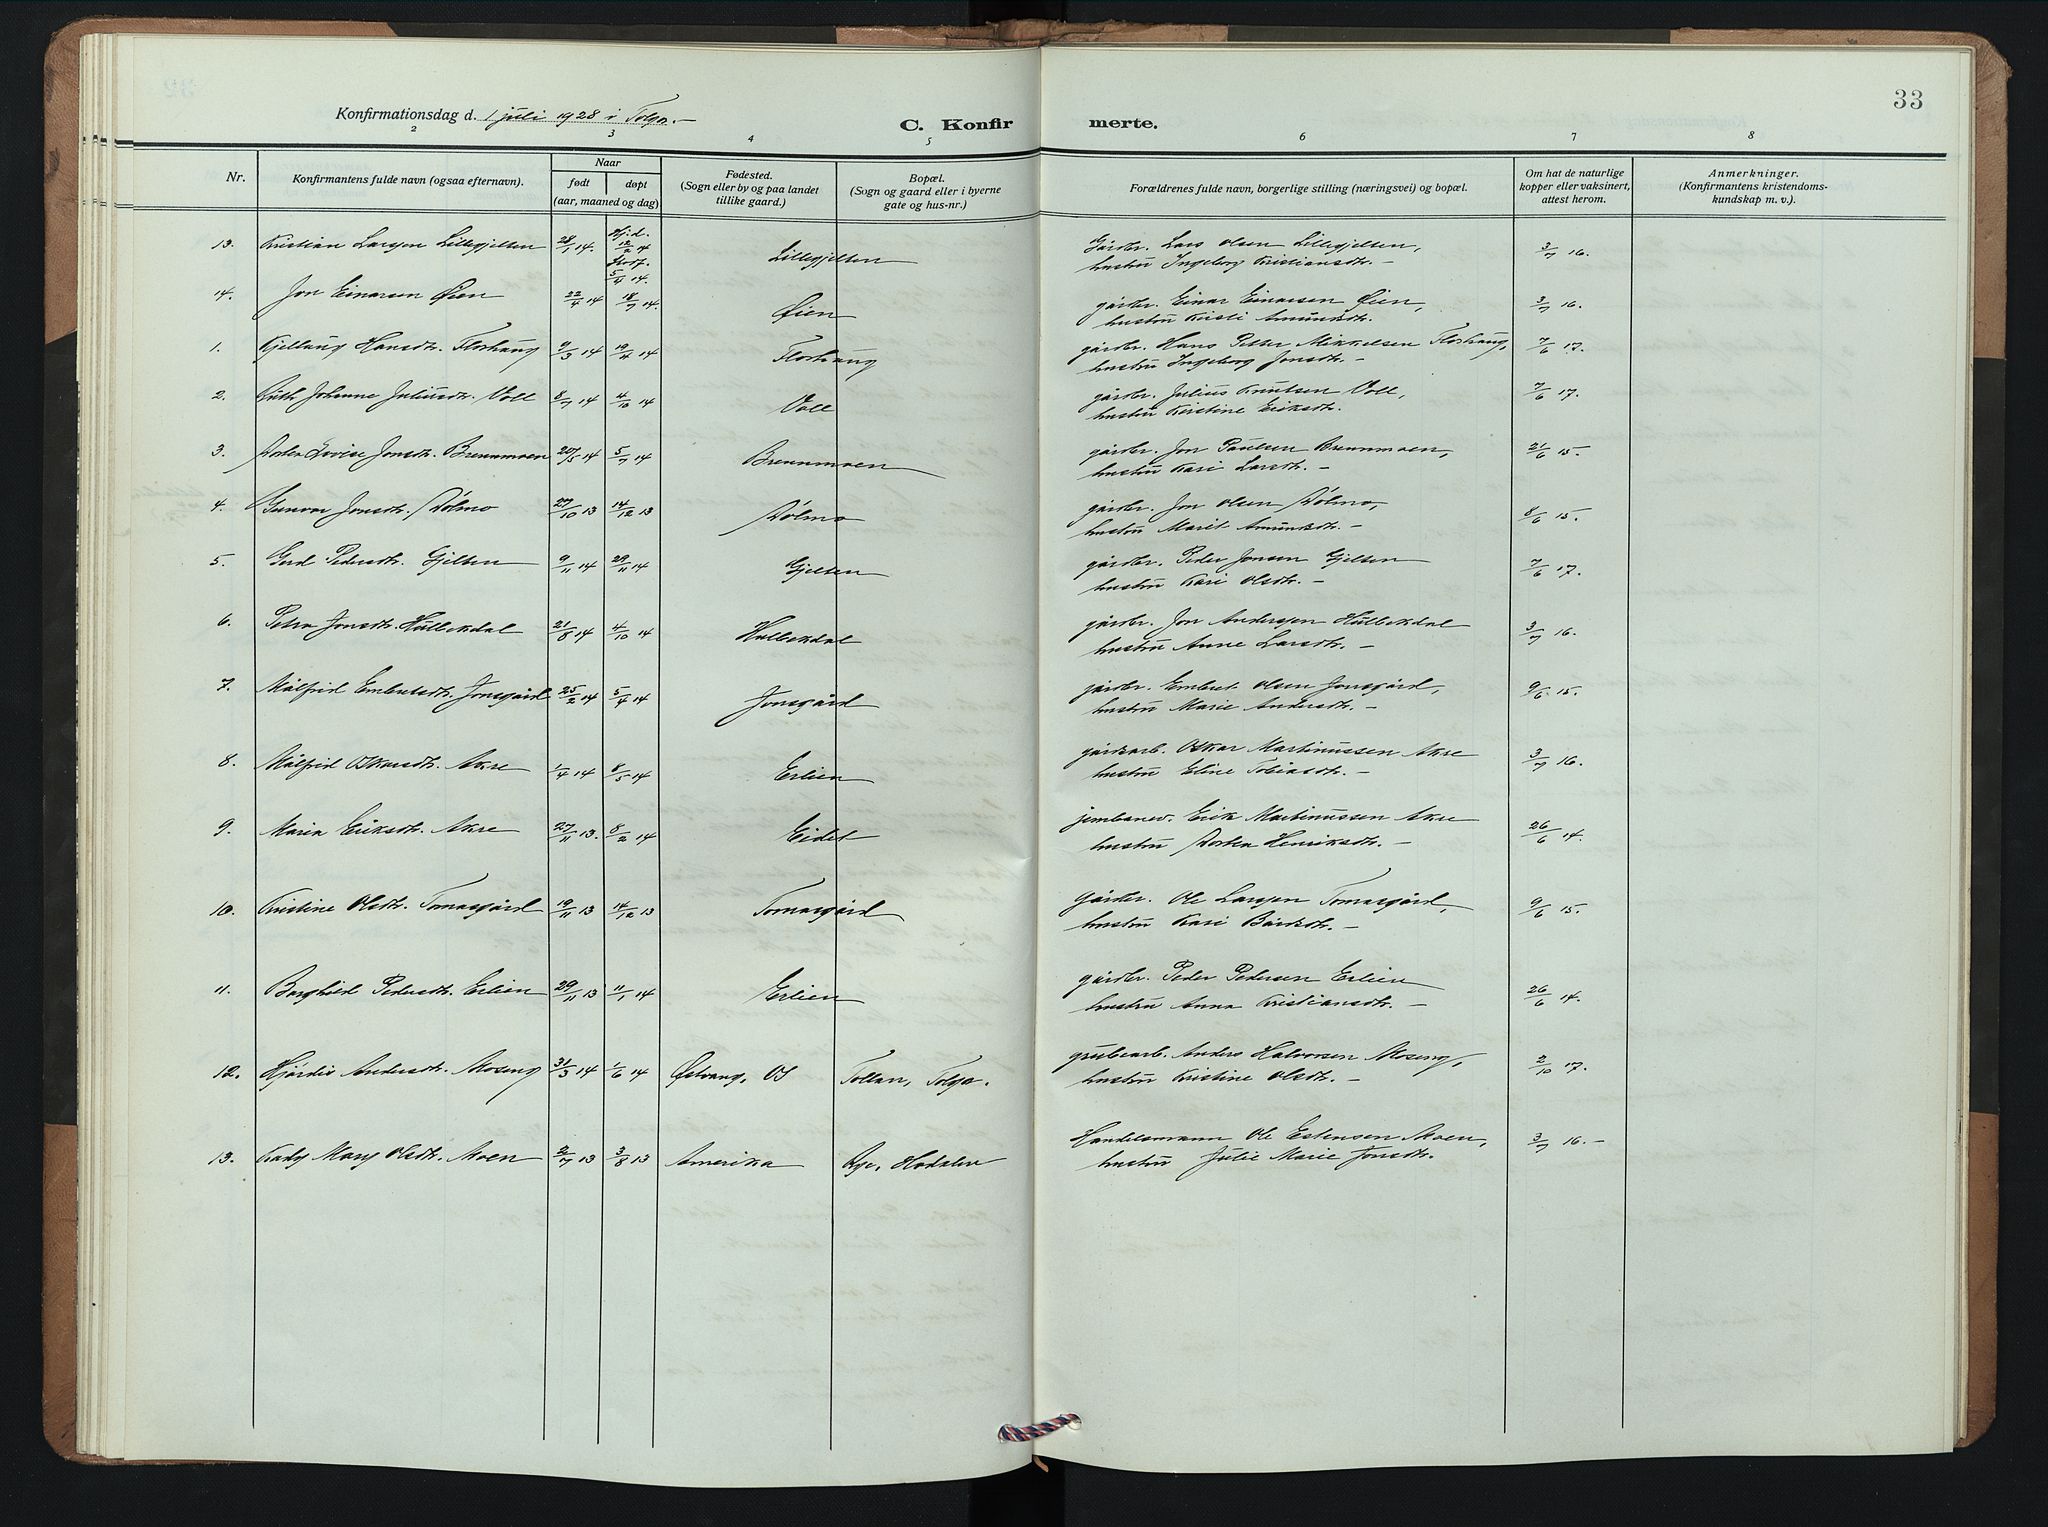 33
Konfirmationsdag d. 1 juli 1928 i Tolga.–
C. Konfirmerte.
2 3 4 5 6 7 8
Nr. Konfirmantens fulde navn (ogsaa efternavn). Naar født døpt (aar, maaned og dag) Fødested. (Sogn eller by og paa landet tillike gaard.) Bopæl. (Sogn og gaard eller i byerne gate og hus-nr.) Forældrenes fulde navn, borgerlige stilling (næringsvei) og bopæl. Om hat de naturlige kopper eller vaksinert, attest herom. Anmerkninger. (Konfirmantens kristendomskundskap m. v.).
13. Kristian Larssen Lillegjelten 28/1 14. Hjd. 12/2 14 Stadf. 5/4 14. Lillegjelten Gårdbr. Lars Olsen Lillegjelten, 3/7 16.
hustru Ingeborg Kristiansdtr. –
14. Jon Einarsen Øien 22/4 14 18/7 14. Øien gårdbr. Einar Einarsen Øien, 3/7 16.
hustru Kirsti Amundsdtr.
1. Kjellaug Hansdtr. Florhaug 9/3 14 19/4 14 Florhaug gårdbr. Hans Petter Mikkelsen Florhaug, 7/6 17.
hustru Ingeborg Jonsdtr. –
2. Ruth Johanne Juliusdtr. Voll 8/7 14 4/10 14 Voll gårdbr. Julius Knutsen Voll, 7/6 17.
hustru Kirstine Eriksdtr.
3. Dortea Lovise Jonsdtr. Brennmoen 20/5 14 5/7 14 Brennmoen gårdbr. Jon Paulsen Brennmoen, 21/6 15.
hustru Kari Larsdtr. –
4. Gunvor Jonsdtr. Dølmo 27/10 13 14/12 13 Dølmo gårdbr. Jon Olsen Dølmo, 8/6 15.
hustru Marit Amundsdtr. –
5. Gerd Pedersdtr. Gjelten 9/11 14 29/11 14 Gjelten gårdbr. Peder Jonsen Gjelten 7/6 17.
hustru Kari Olsdtr. –
6. Petra Jonsdtr. Hullekdal 21/8 14 4/10 14 Hullekdal gårdbr. Jon Anderssen Hullekdal 3/7 16.
hustru Anne Larsdtr. –
7. Målfrid Embretsdtr. Jonsgård 25/2 14 5/4 14 Jonsgård gårdbr. Embret Olsen Jonsgård, 9/6 15.
hustru Marie Andersdtr. –
8. Målfrid Oskarsdtr. Akre 1/4 14 8/5 14 Erlien gårdsarb. Oskar Martinussen Akre 3/7 16.
hustru Eline Tobiasdtr. –
9. Maria Eriksdtr. Akre 27/11 13. 8/2 14 Eidet jernbanev. Erik Martinussen Akre 26/6 14.
hustru Dortea Henriksdtr. –
10. Kristine Olsdtr. Tomasgård 19/11 13 14/12 13 Tomasgård Gårdbr. Ole Larssen Tomasgård, 9/6 15.
hustru Kari Bårdsdtr. –
11. Borghild Pedersdtr. Erlien 29/11 13 11/1 14 Erlien gårdbr. Peder Pedersen Erlien 26/6 14.
hustru Anna Kristiansdtr. –
12. Hjørdis Andersdtr. Moseng 31/3 14 1/6 14 Østvang, Os Tollan, Tolga. grubearb. Anders Halvorsen Moseng, 2/10 17.
hustru Kristine Olsdtr. –
13. Kady Mary Olsdtr. Moen 2/7 13 3/8 13 Amerika Rye, Hodalen Handelsmann Ole Estensen Moen, 3/7 16.–
hustru Julie Marie Jonsdtr.